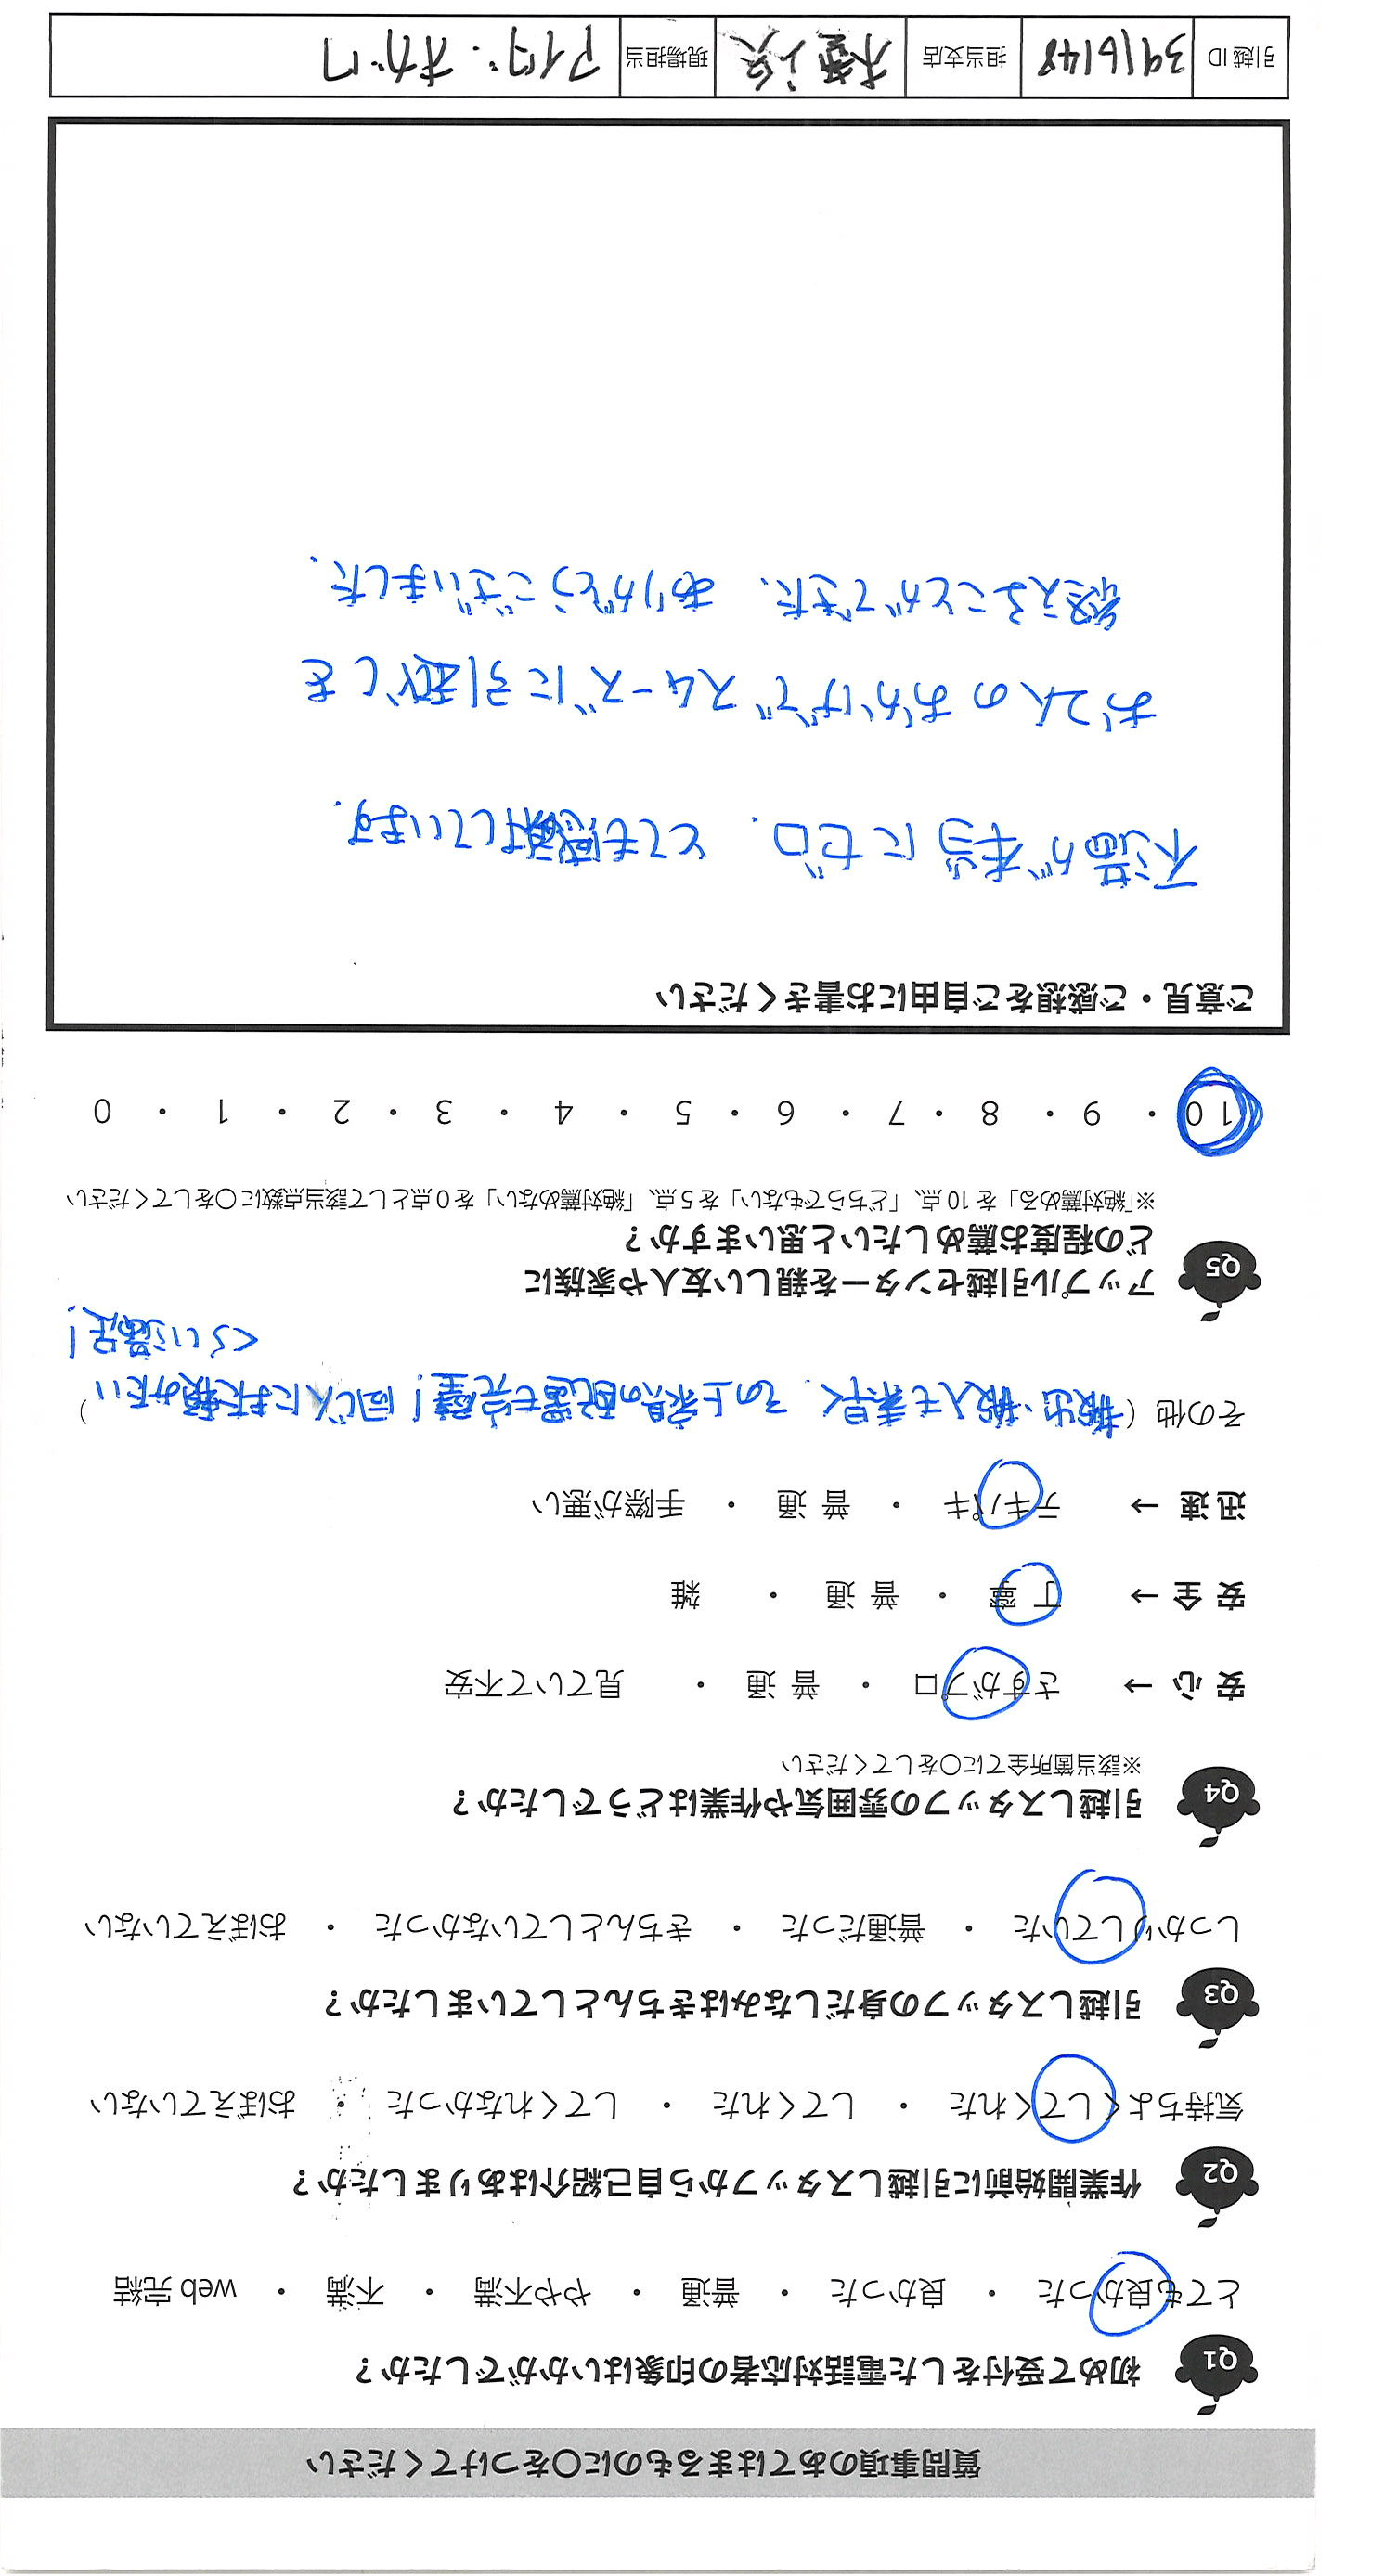 質問事項のあてはまるものに〇をつけてください
Q1 初めて受付をした電話対応者の印象はいかがでしたか？
とても良かった ・ 良かった ・ 普通 ・ やや不満 ・ 不満 ・ web 完結
Q2 作業開始前に引越しスタッフから自己紹介はありましたか？
気持ちよくしてくれた ・ してくれた ・ してくれなかった ・ おぼえていない
Q3 引越しスタッフの身だしなみはきちんとしていましたか？
しっかりしていた ・ 普通だった ・ きちんとしていなかった ・ おぼえていない
Q4 引越しスタッフの雰囲気や作業はどうでしたか？
※該当箇所全てに〇をしてください
安心 → さすがプロ ・ 普通 ・ 見ていて不安
安全 → 丁寧 ・ 普通 ・ 雑
迅速 → テキパキ ・ 普通 ・ 手際が悪い
その他（搬出・搬入も素早く、その上家具の配置も完璧！同じ人にまた頼みたい
くらい満足！）
Q5 アップル引越センターを親しい友人や家族に
どの程度お薦めしたいと思いますか？
※「絶対薦める」を 10 点、「どちらでもない」を 5 点、「絶対薦めない」を 0 点として該当点数に〇をしてください
10 ・ 9 ・ 8 ・ 7 ・ 6 ・ 5 ・ 4 ・ 3 ・ 2 ・ 1 ・ 0
ご意見・ご感想をご自由にお書きください
不満が本当にゼロ。とても感謝しています。
お2人のおかげでスムーズに引越しを
終えることができた。ありがとうございました。
引越 ID 3916148 担当支店 横浜 現場担当 アイダ・オガワ